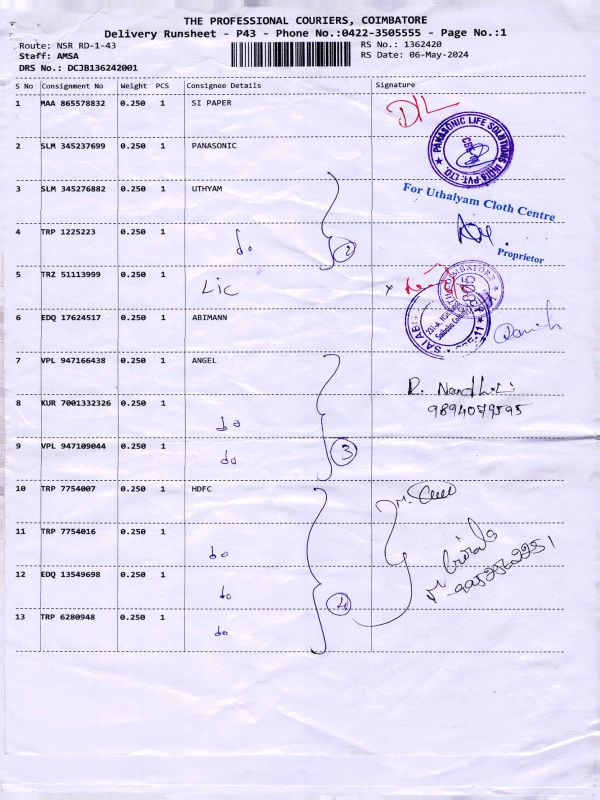 THE PROFESSIONAL COURIERS, COIMBATORE
Delivery Runsheet - P43 - Phone No.:0422-3505555 - Page No.:1
Route: NSR RD-1-43 RS No.: 1362420
Staff: AMSA RS Date: 06-May-2024
DRS No.: DCJB136242001
S No Consignment No Weight PCS Consignee Details Signature
1 MAA 865578832 0.250 1 SI PAPER
2 SLM 345237699 0.250 1 PANASONIC
PANASONIC LIFE SOLUTIONS INDIA PVT. LTD.
3 SLM 345276882 0.250 1 UTHYAM
For Uthalyam Cloth Centre
4 TRP 1225223 0.250 1 do 2
Proprietor
5 TRZ 51113999 0.250 1 Lic
6 EDQ 17624517 0.250 1 ABIMANN
7 VPL 947166438 1 0.250 ANGEL
R. Nandhini
8 KUR 7001332326 0.250 1 do
9894079595
9 VPL 947109044 0.250 1 do 3
10 TRP 7754007 0.250 1 HDFC
11 TRP 7754016 0.250 1 do
9952562251
12 EDQ 13549698 0.250 1 do 4
13 TRP 6280948 0.250 1 do